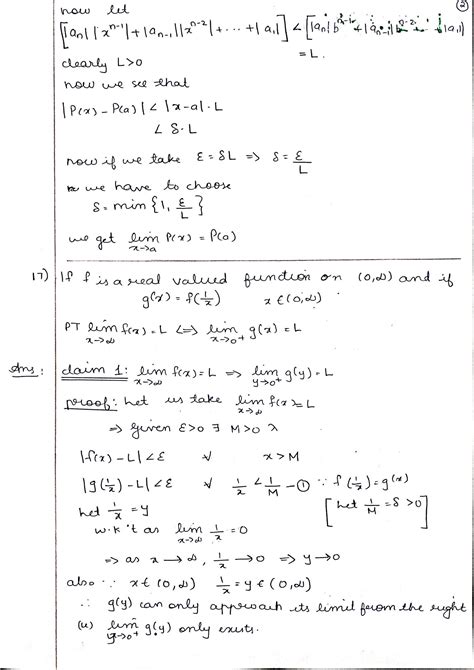 now let
[|aₙ||xⁿ⁻¹|+|aₙ₋₁||xⁿ⁻²|+...+|a₁|] < [|aₙ|bⁿ⁻¹+|aₙ₋₁|bⁿ⁻²+...+|a₁|]
= L.
clearly L>0
now we see that
|P(x) - P(a)| < |x-a|·L
< δ·L
now if we take ε = δL ⇒ δ = ε/L
we have to choose
δ = min{1, ε/L}
we get lim x→a P(x) = P(a)
17) If f is a real valued function on (0,∞) and if
g(x) = f(1/x) x ∈ (0,∞)
PT lim x→∞ f(x) = L ⇔ lim x→0⁺ g(x) = L
Ans: claim 1: lim x→∞ f(x) = L ⇒ lim y→0⁺ g(y) = L
proof: Let us take lim x→∞ f(x) = L
⇒ Given ε>0 ∃ M>0 ∋
|f(x) - L| < ε ∀ x > M
|g(1/x) - L| < ε ∀ 1/x < 1/M - ① ∵ f(1/x) = g(x)
Let 1/x = y [Let 1/M = δ > 0]
w.k't as lim x→∞ 1/x = 0
⇒ as x → ∞, 1/x → 0 ⇒ y → 0
also ∵ x ∈ (0,∞) 1/x = y ∈ (0,∞)
∴ g(y) can only approach its limit from the right
(ie) lim y→0⁺ g(y) only exists.